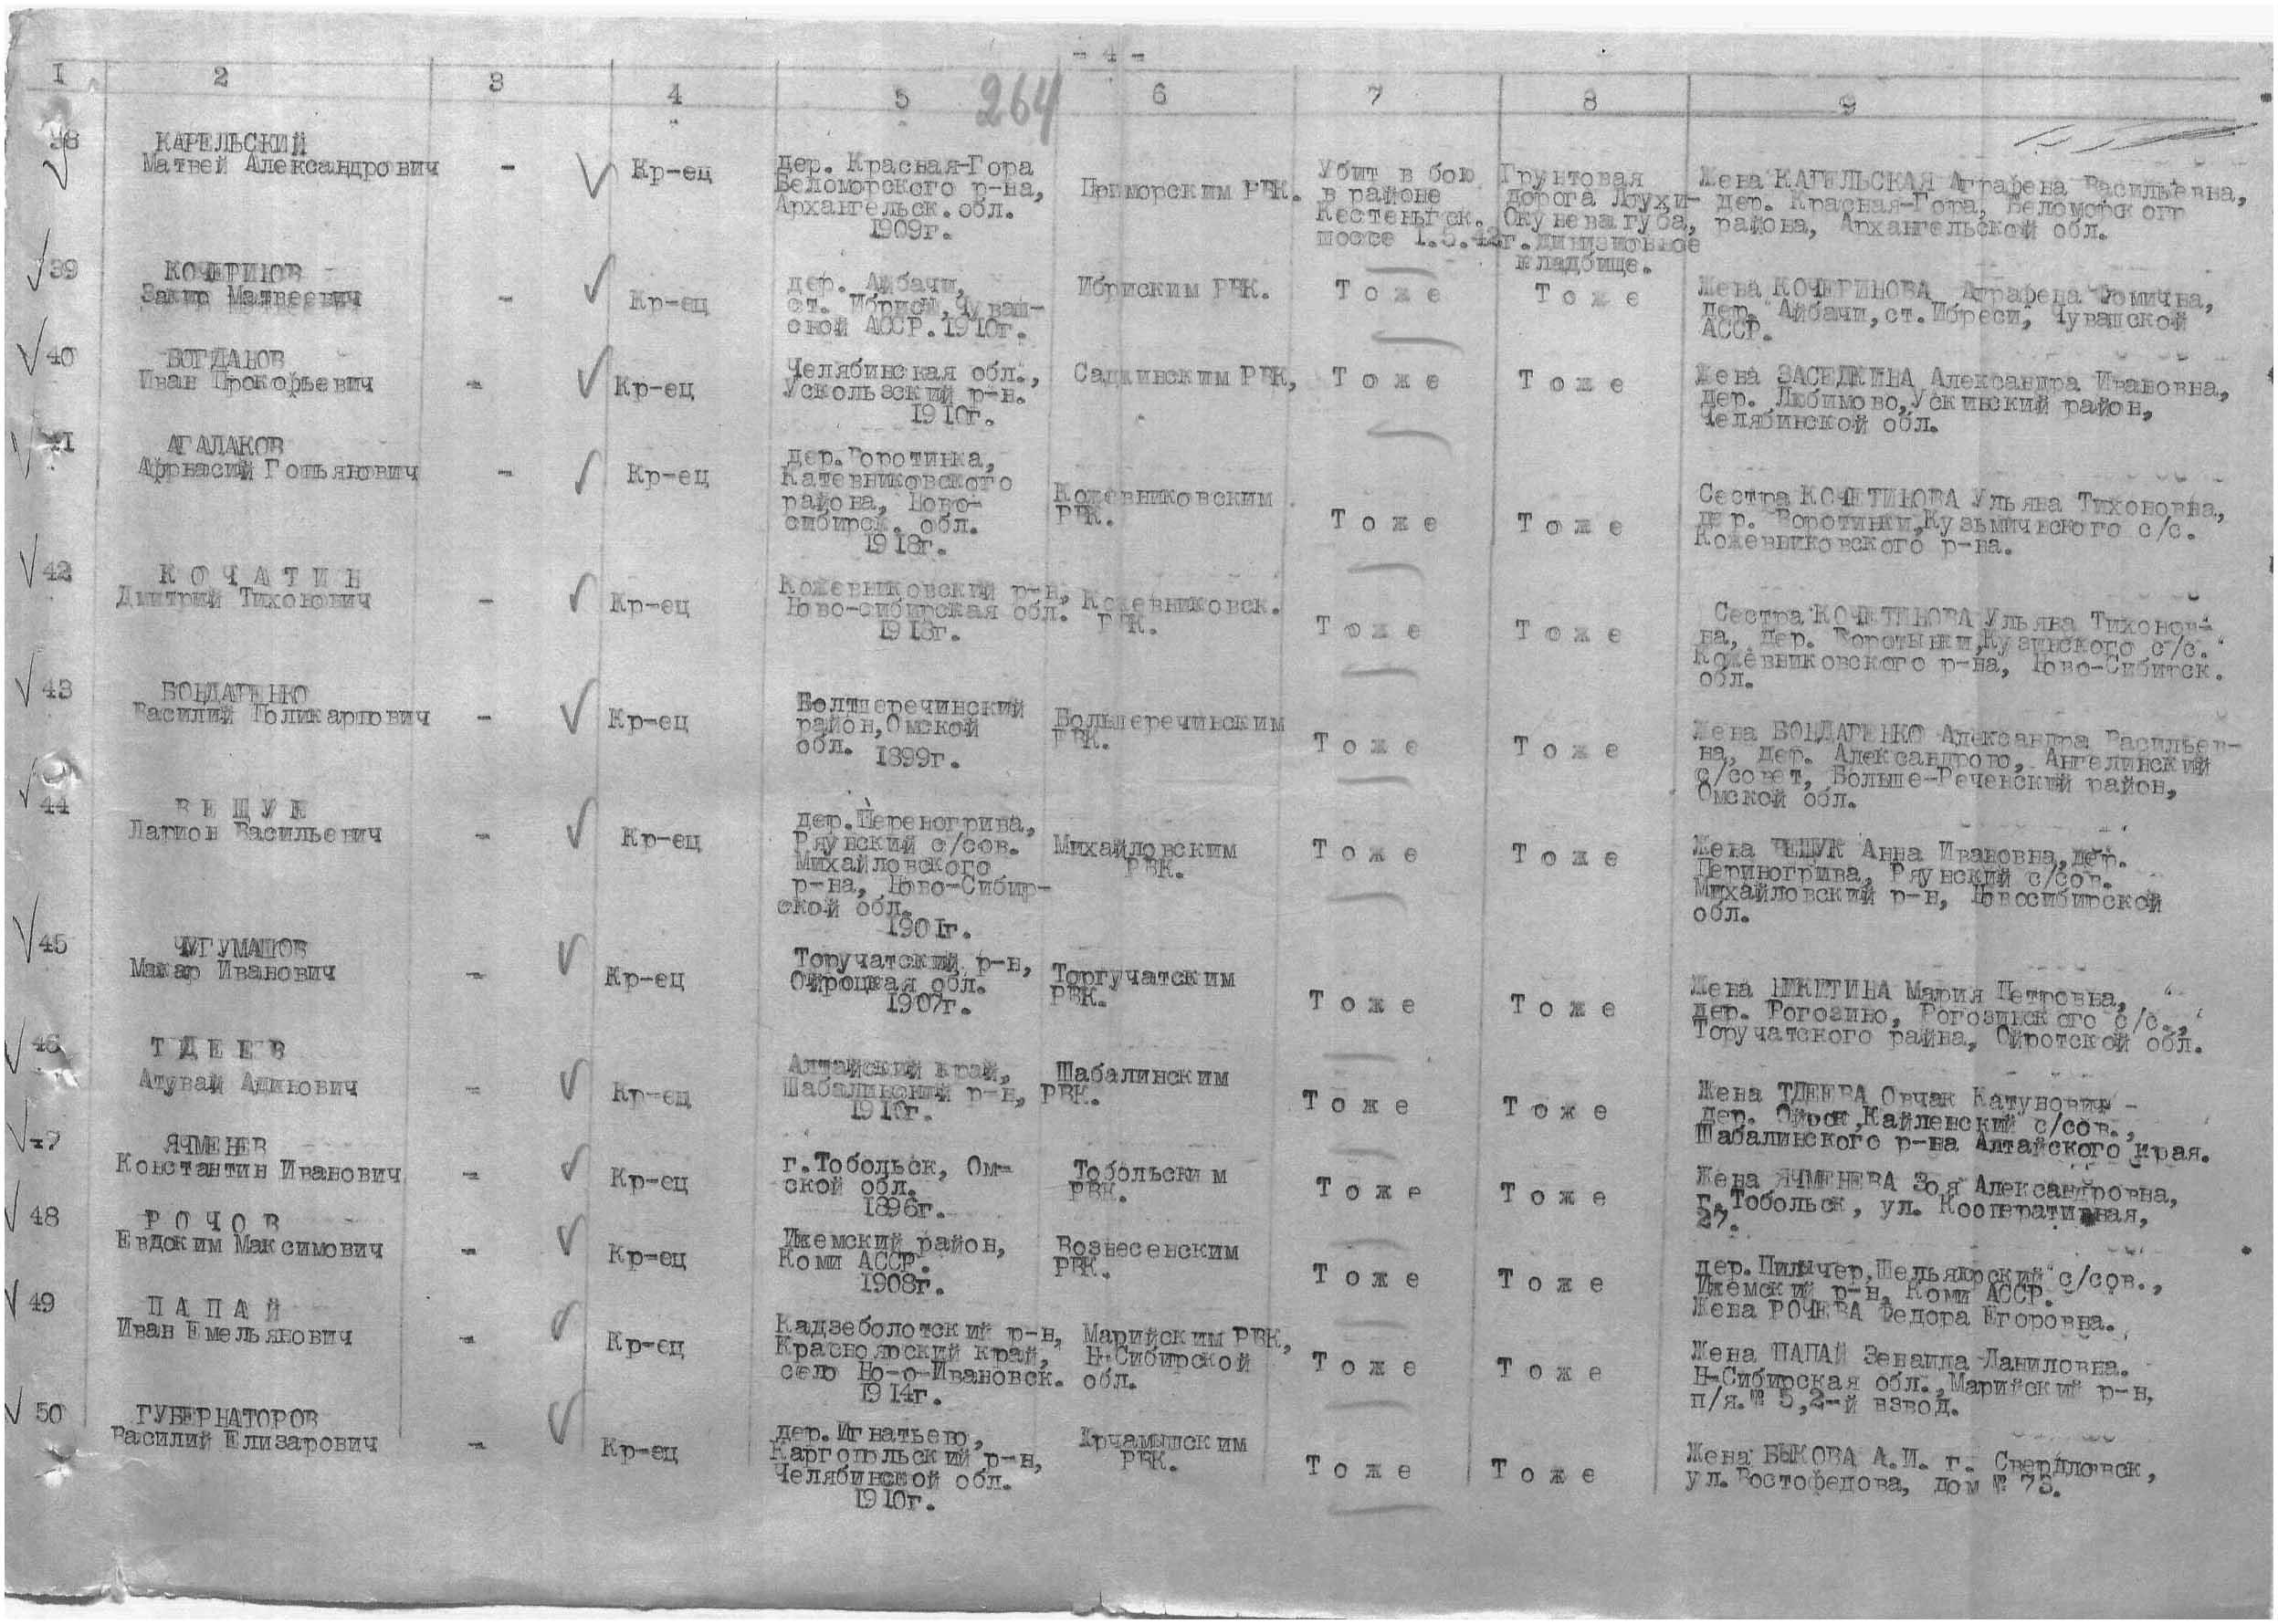 - 4 -
I 2 3 4 5 6 7 8 9
264
38
КАРЕЛЬСКИЙ
Матвей Александрович
-
Кр-ец
дер. Красная-Гора
Беломорского р-на,
Архангельск. обл.
1909г.
Приморским РВК.
Убит в бою
в районе
Кестеньгск.
шоссе 1.5.42г.
Грунтовая
дорога Лоухи-
Окунева губа,
дивизионное
кладбище.
Жена КАРЕЛЬСКАЯ Аграфена Васильевна,
дер. Красная-Гора, Беломорског
района, Архангельской обл.
39
КОЧЕРИНОВ
Закир Матвеевич
-
Кр-ец
дер. Айбачи,
ст. Ибриси, Чуваш-
ской АССР. 1910г.
Ибриским РВК.
Т о ж е
Т о ж е
Жена КОЧЕРИНОВА Аграфена Фомична,
дер. Айбачи, ст. Ибреси, Чувашской
АССР.
40
БОГДАНОВ
Иван Прокофьевич
-
Кр-ец
Челябинская обл.,
Ускользский р-н.
1910г.
Садкинским РВК,
Т о ж е
Т о ж е
Жена ЗАСЕДКИНА Александра Ивановна,
дер. Любимово, Ускинский район,
Челябинской обл.
41
АГАЛАКОВ
Афнасий Готьянович
-
Кр-ец
дер. Воротинка,
Катевниковского
района, Ново-
сибирск. обл.
1918г.
Кожевниковским
РВК.
Т о ж е
Т о ж е
Сестра КОЧЕТИНОВА Ульяна Тихоновна,
дер. Воротинки, Кузьмического с/с.
Кожевниковского р-на.
42
К О Ч А Т И Н
Дмитрий Тихонович
-
Кр-ец
Кожевниковский р-н,
Ново-сибирская обл.
1918г.
Кожевниковск.
РВК.
Т о ж е
Т о ж е
Сестра КОЧЕТИНОВА Ульяна Тихонов-
на, дер. Воротынки, Кузинского с/с.
Кожевниковского р-на, Ново-Сибитск.
обл.
43
БОНДАРЕНКО
Василий Поликарпович
-
Кр-ец
Болтшеречинский
район, Омской
обл. 1899г.
Большеречинским
РВК.
Т о ж е
Т о ж е
Жена БОНДАРЕНКО Александра Васильев-
на, дер. Александрово, Ангелинский
с/совет, Больше-Реченский район,
Омской обл.
44
В Е Щ У К
Ларион Васильевич
-
Кр-ец
дер. Переногрива,
Ряувский с/сов.
Михайловского
р-на, Ново-Сибир-
ской обл.
1901г.
Михайловским
РВК.
Т о ж е
Т о ж е
Жена ВЕЩУК Анна Ивановна, дер.
Периногрива, Ряунский с/сов.
Михайловский р-н, Новосибирской
обл.
45
ЧУГУМАШОВ
Макар Иванович
-
Кр-ец
Торучатский р-н,
Ойроцкая обл.
1907г.
Торгучатским
РВК.
Т о ж е
Т о ж е
Жена НИКИТИНА Мария Петровна,
дер. Рогозино, Рогозинского с/с.,
Торучатского райна, Ойротской обл.
46
Т Д Е Е В
Атувай Адинович
-
Кр-ец
Алтайский край,
Шабалинский р-н,
1910г.
Шабалинским
РВК.
Т о ж е
Т о ж е
Жена ТДЕЕВА Овчак Катунович -
дер. Кайленский с/сов.,
Шабалинского р-на Алтайского края.
47
ЯЧМЕНЕВ
Константин Иванович
-
Кр-ец
г. Тобольск, Ом-
ской обл.
1896г.
Тобольским
РВК.
Т о ж е
Т о ж е
Жена ЯЧМЕНЕВА Зоя Александровна,
г. Тобольск, ул. Кооперативная,
27.
48
Р О Ч О В
Евдоким Максимович
-
Кр-ец
Ижемский район,
Коми АССР.
1908г.
Вознесенским
РВК.
Т о ж е
Т о ж е
дер. Пильчер, Шельяюрский с/сов.,
Ижемский р-н, Коми АССР.
Жена РОЧЕВА Федора Егоровна.
49
П А П А Й
Иван Емельянович
-
Кр-ец
Кадзеболотский р-н,
Красноярский край,
село Но-о-Ивановск.
1914г.
Марийским РВК,
Н-Сибирской
обл.
Т о ж е
Т о ж е
Жена ПАПАЙ Зенаида Даниловна.
Н-Сибирская обл., Марийский р-н,
п/я. № 5, 2-й взвод.
50
ГУБЕРНАТОРОВ
Василий Елизарович
-
Кр-ец
дер. Игнатьево,
Каргопольский р-н,
Челябинской обл.
1910г.
Ирчамышским
РВК.
Т о ж е
Т о ж е
Жена БЫКОВА А.И. г. Свердловск,
ул. Востофедова, дом № 73.